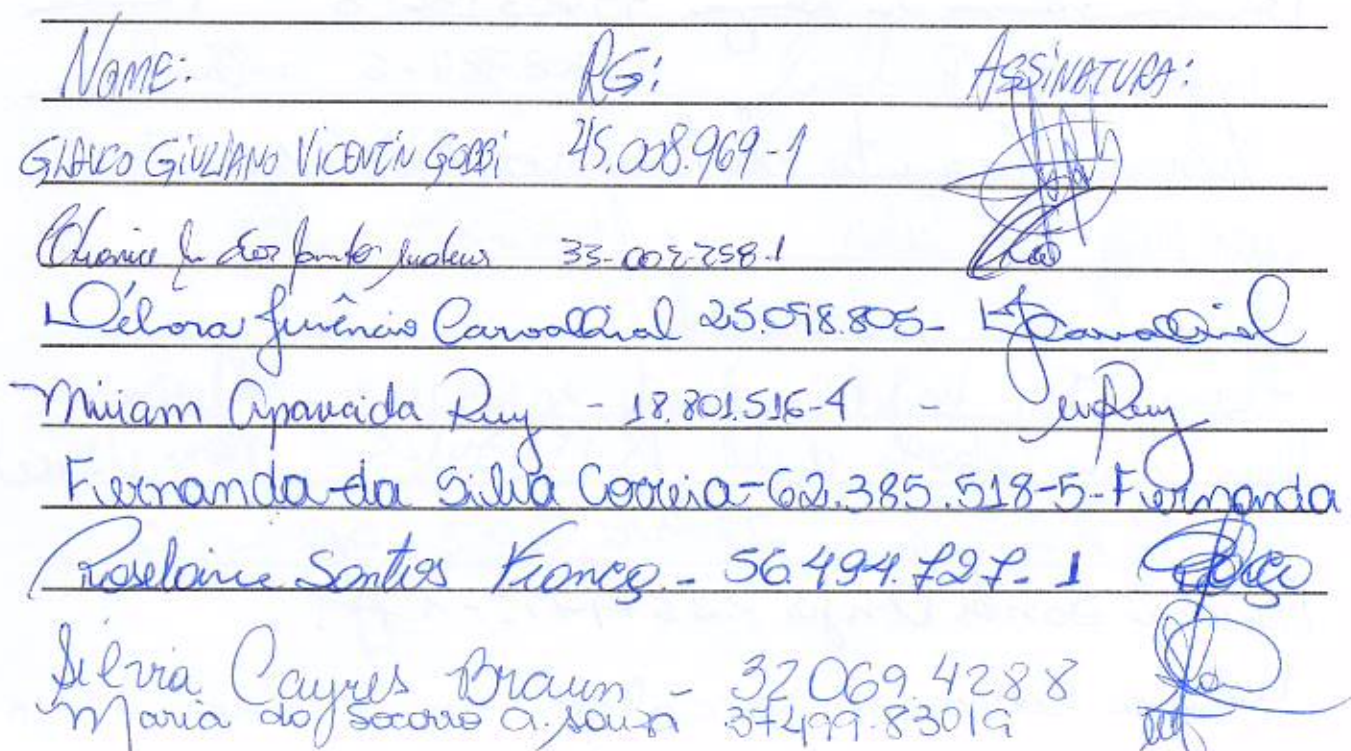 Nome: RG: Assinatura:
Glauco Giuliano Vicentin Gobbi 45.008.969-1
dos Santos 33-002-258-1
Débora Juvêncio Carvalhal 25.098.805- DJCarvalhal
Miriam Aparecida Ruy - 18.801.516-4 - Ruy
Fernanda da Silva Correia-62.385.518-5-Fernanda
Roselaine Santos Franco - 56.494.727-1
Silvia Cayres Braun - 32069.4288
Maria do Socorro A. Souza 37499.83019